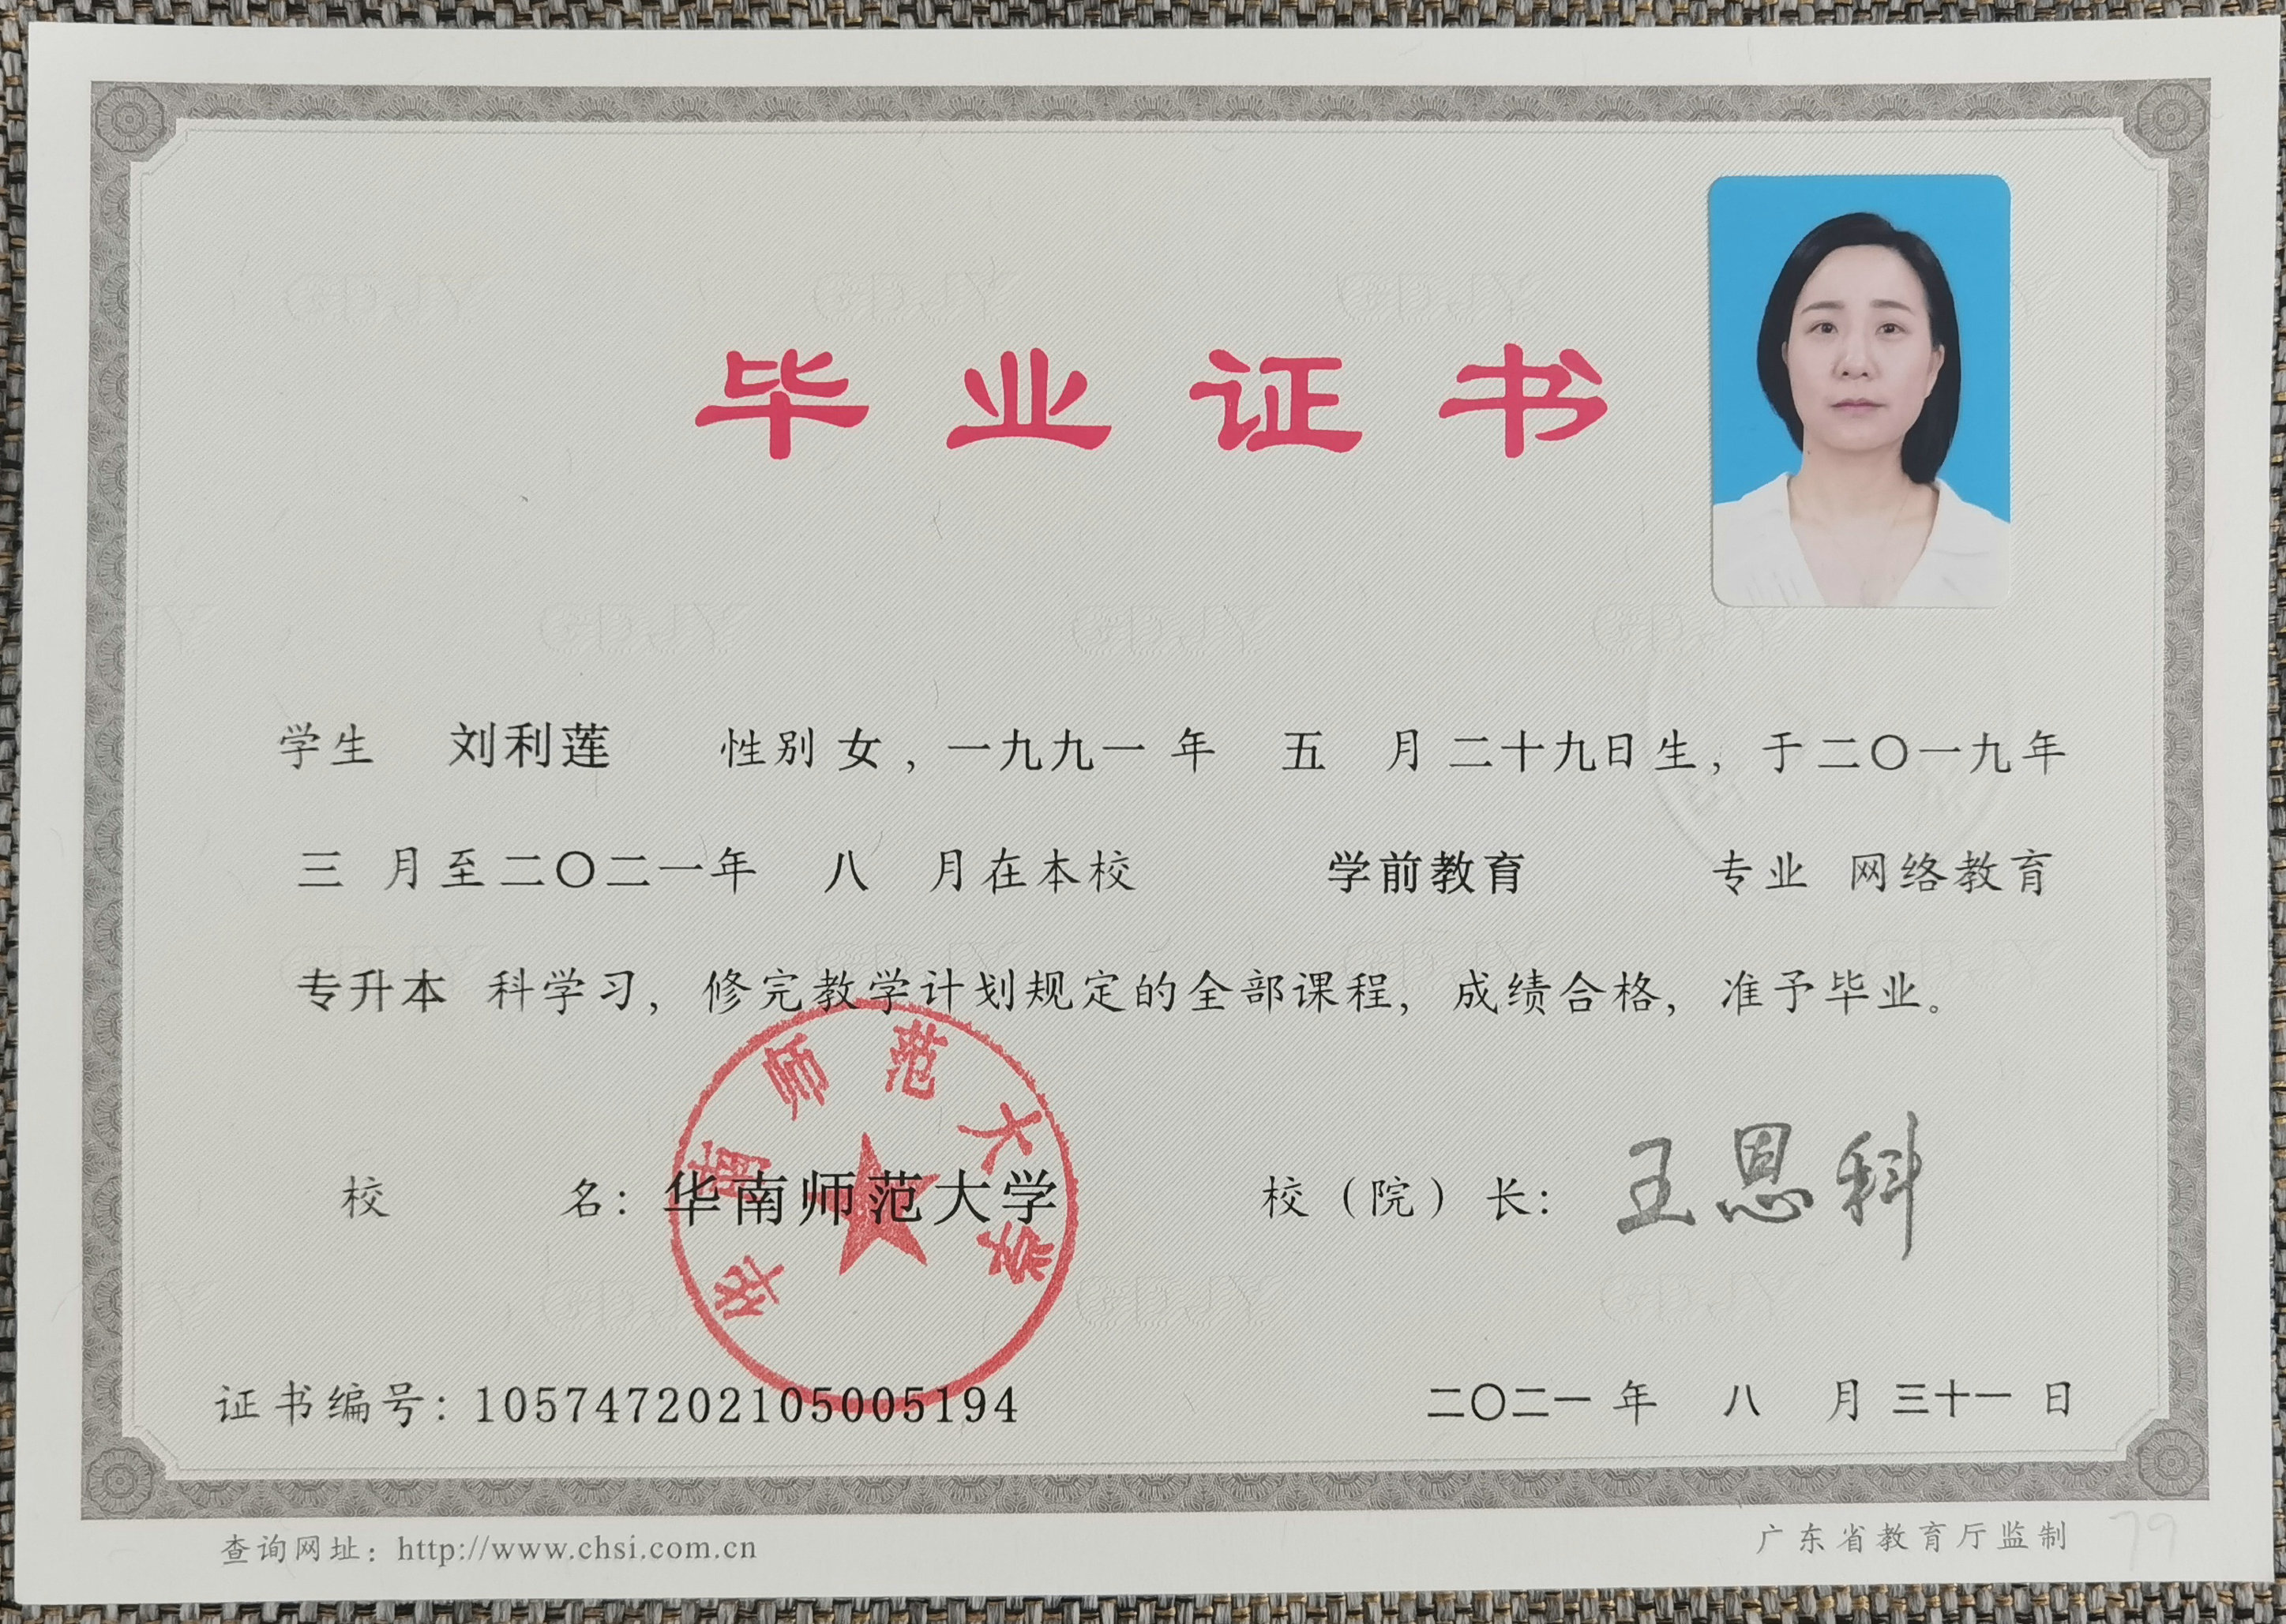 毕业证书
学生 刘利莲 性别 女，一九九一 年 五 月 二十九日生，于二〇一九年
三 月至二〇二一年 八 月在本校 学前教育 专业 网络教育
专升本 科学习，修完教学计划规定的全部课程，成绩合格，准予毕业。
华南师范大学
校 名：华南师范大学 校（院）长：王恩科
证书编号：105747202105005194 二〇二一 年 八 月 三十一 日
查询网址：http://www.chsi.com.cn 广东省教育厅监制
79
GDJY GDJY GDJY
GDJY GDJY GDJY
GDJY GDJY GDJY GDJY
GDJY GDJY GDJY